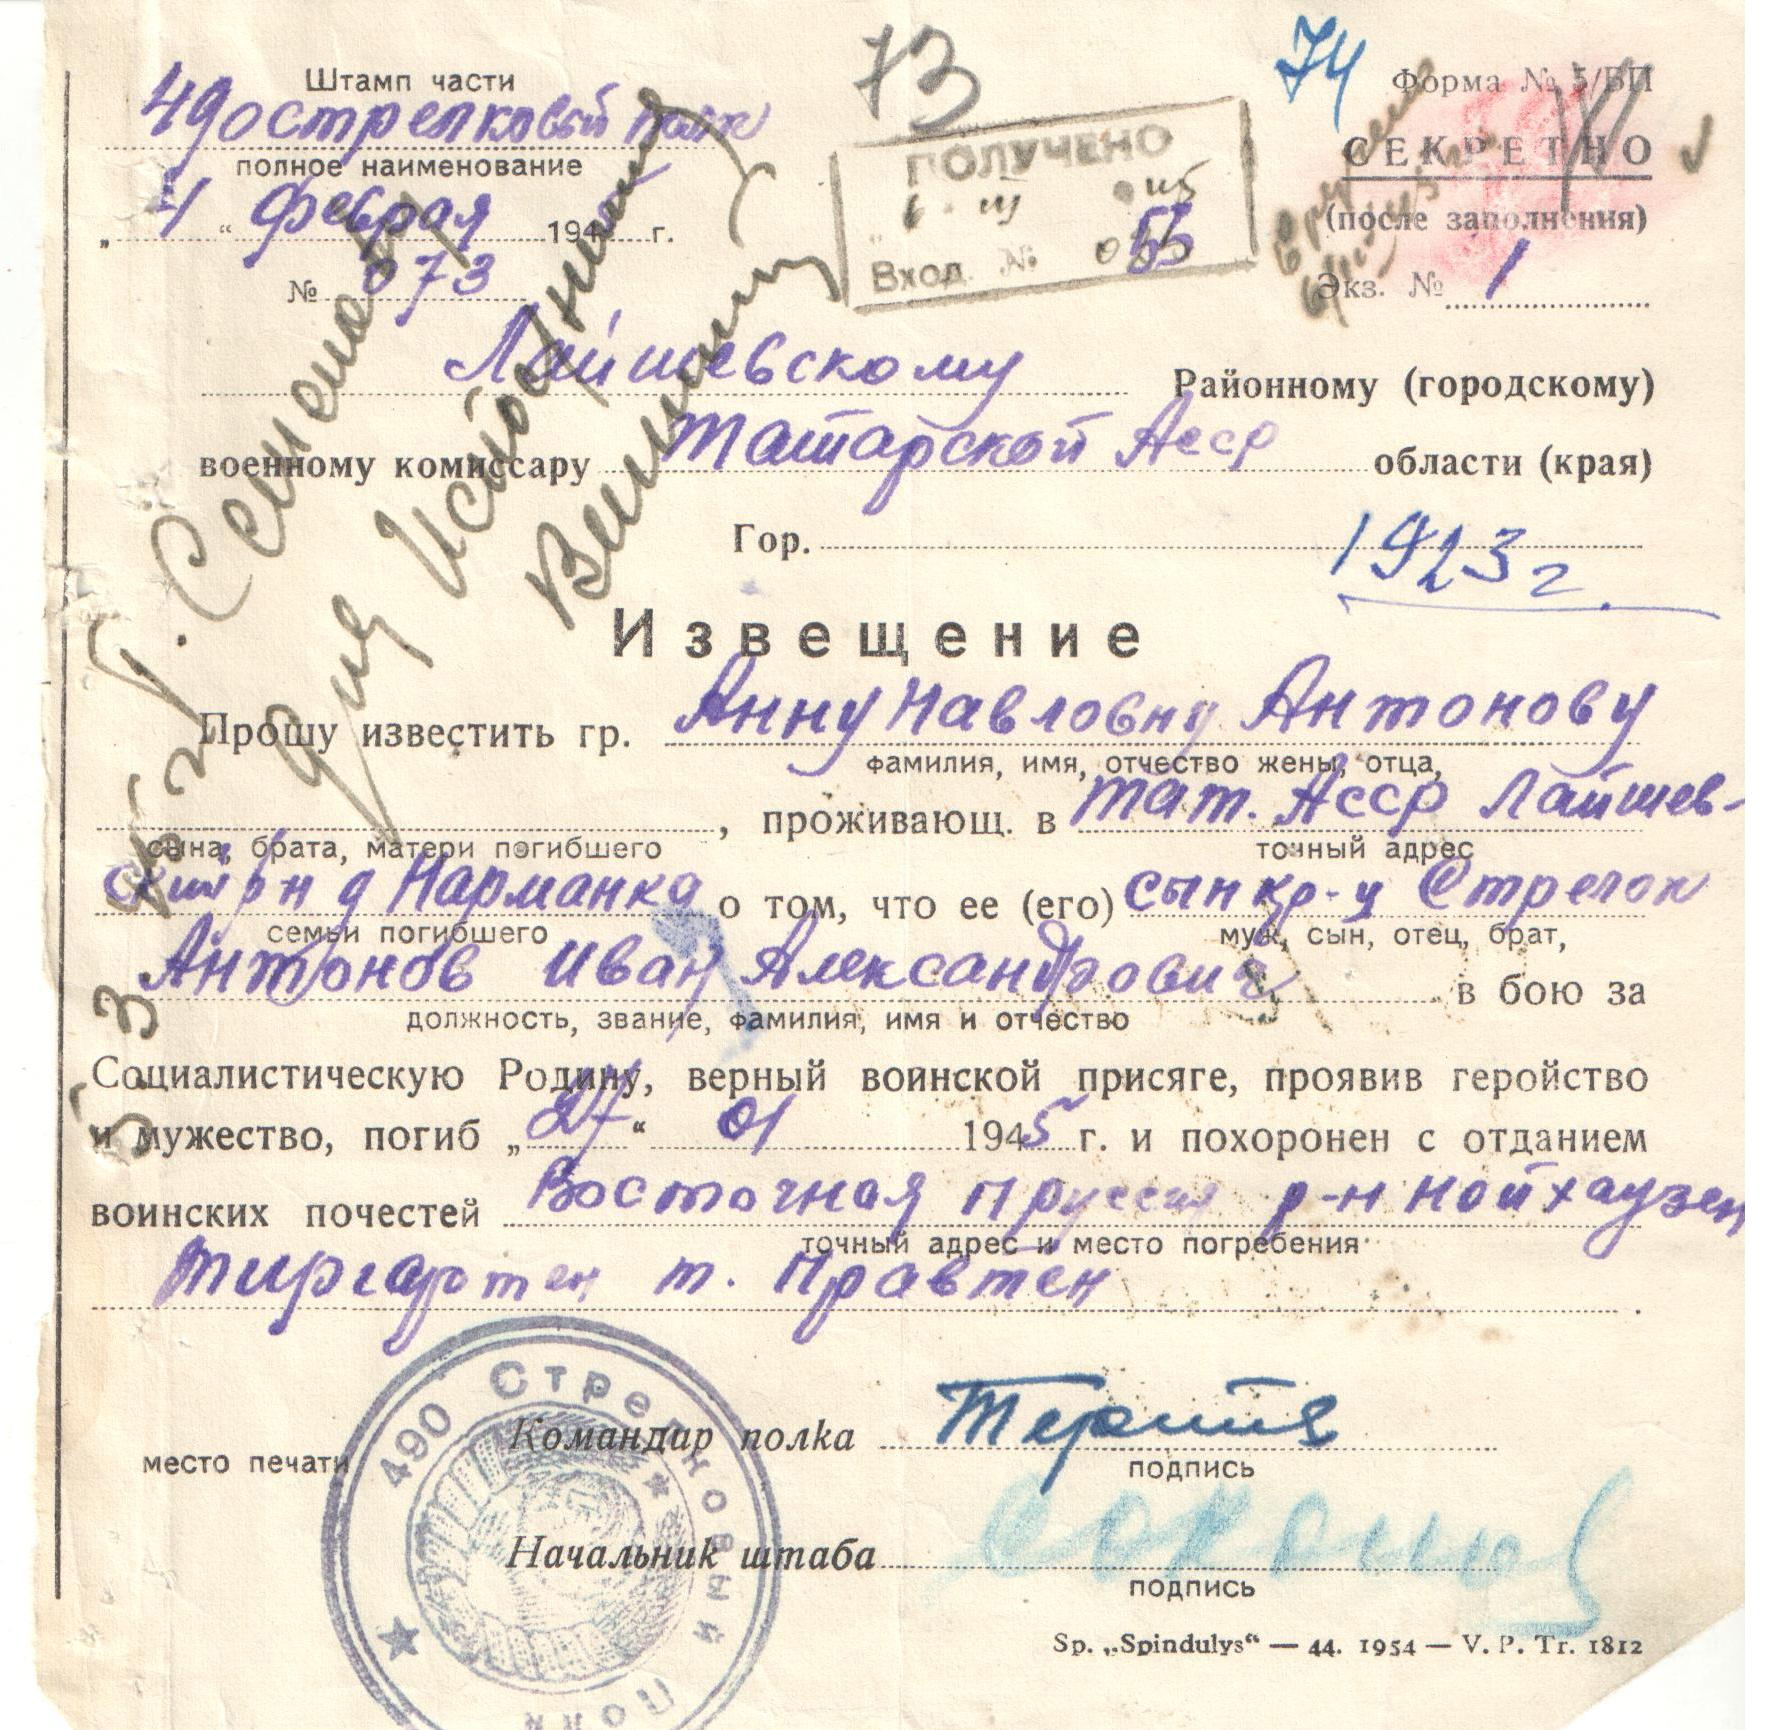 73
74
Штамп части
Форма № 5/БП
490 стрелковый полк
СЕКРЕТНО
полное наименование
ПОЛУЧЕНО
(после заполнения)
„ 4 “ февраля 194 г.
Вход. № 0
Экз. № 1
№ 073
Лаишевскому Районному (городскому)
военному комиссару Татарской Асср области (края)
Гор.
1923 г.
Извещение
Прошу известить гр. Анну Павловну Антонову
фамилия, имя, отчество жены, отца,
, проживающ. в Тат. Асср Лаишев-
сына, брата, матери погибшего точный адрес
ский рн д Нарманка о том, что ее (его) сын кр-ц Стрелок
семьи погибшего муж, сын, отец, брат,
Антонов Иван Александрович в бою за
должность, звание, фамилия, имя и отчество
Социалистическую Родину, верный воинской присяге, проявив геройство
и мужество, погиб „ 27 “ 01 1945 г. и похоронен с отданием
воинских почестей Восточная Пруссия р-н Нойхаузен
точный адрес и место погребения
Тиргартен т. Правтен
490 Стрелковый Полк
Командир полка
место печати
подпись
Начальник штаба
подпись
Sp. „Spindulys“ — 44. 1954 — V. P. Tr. 1812